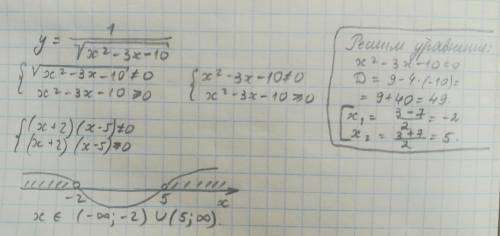 y = 1/√(x²-3x-10)
{ √(x²-3x-10) ≠ 0
x²-3x-10 ≥ 0
{ x²-3x-10 ≠ 0
x²-3x-10 ≥ 0
{ (x+2)(x-5) ≠ 0
(x+2)(x-5) ≥ 0
-2 5 x
x ∈ (-∞; -2) ∪ (5; ∞).
Решим уравнение:
x²-3x-10=0
D = 9-4·(-10)=
= 9+40=49.
[ x₁ = (3-7)/2 = -2.
x₂ = (3+7)/2 = 5.